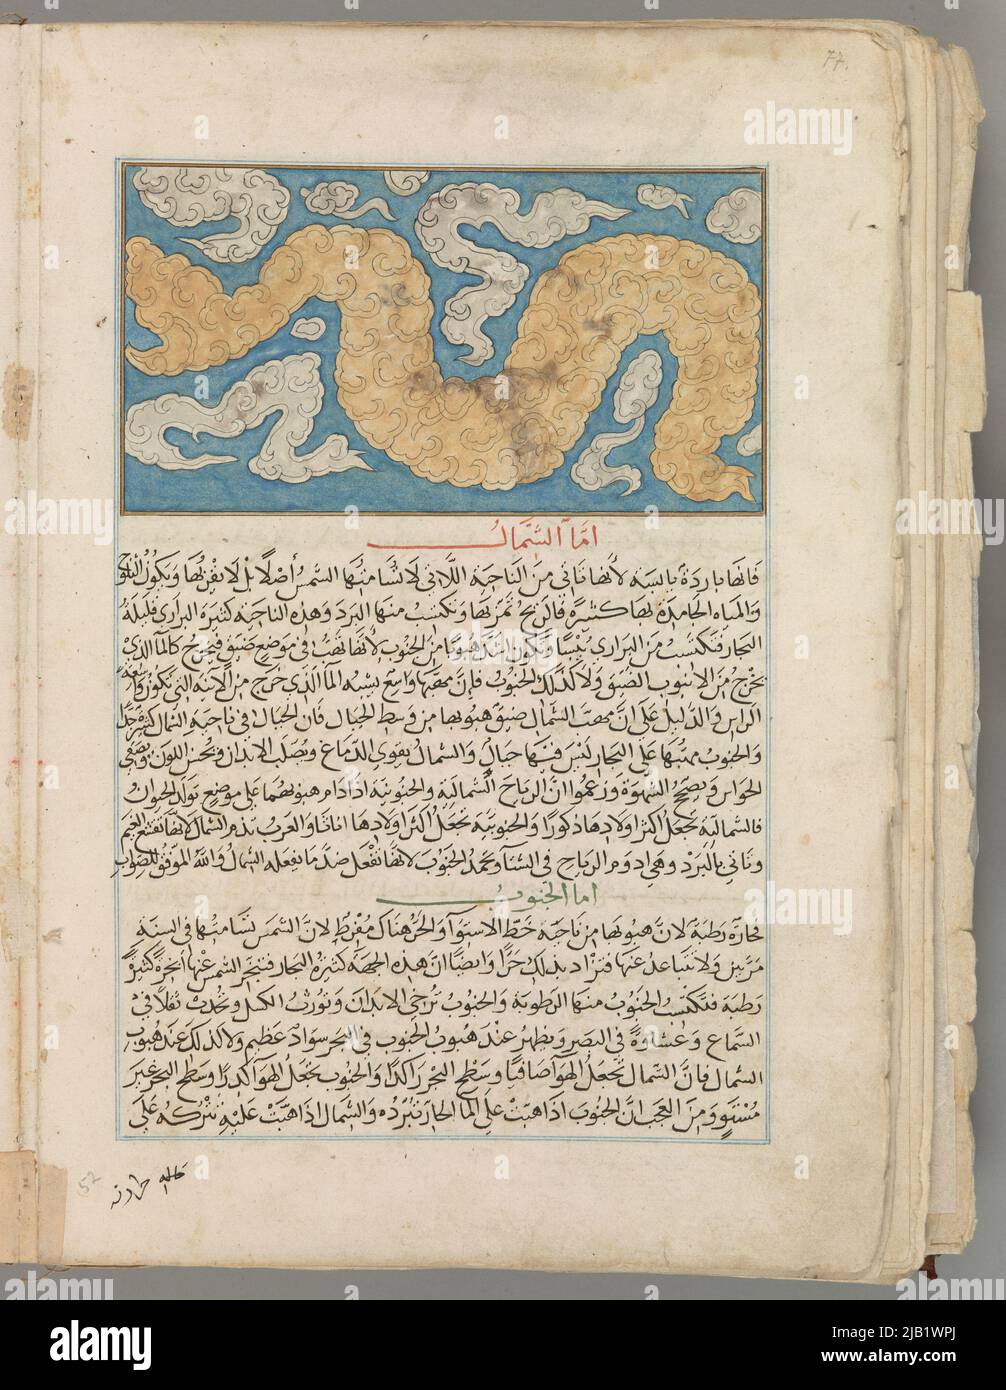 77.
اما الشمال
فانها باردة يابسة لانها تاتي من الناحية اللاتي لا تسامتها الشمس أصلا بل لا يقربها ويكون الثلوج
والمياه الجامدة بها كثيرة فالريح تمر بها وتكتسب منها البرد وهذه الناحية كثيرة البراري قليلة
البحار فتكتسب من البراري يُبْسًا وتكون اشد هبوبًا من الجنوب لأنها تهب في موضع ضيق فيخرج كالماء الذي
يخرج من الانبوب الضيق ولا كذلك الجنوب فإن مهبها واسع يشبه الماء الذي خرج من الآنية التي تكون واسعة
الراس والدليل على ان مهب الشمال ضيق هبوبها من وسط الجبال فان الجبال في ناحية الشمال كثيرة جدا
والجنوب مهبها على البحار ليس فيها جبالٌ والشمال يقوي الدماغ ويصلب الابدان ويحسن اللون ويصفي
الحواس ويصحح الشهوة وزعموا انّ الرياح الشمالية والجنوبية اذا دام هبوبهما على موضع تولد الحيوان
فالشمالية تجعل اكثر اولادها ذكورا والجنوبية تجعل اكثر اولادها اناثا والعرب تذم الشمال لانها تقشع الغيم
وتاتي بالبرد وهي ادوم الرياح في الشتآ وتحمد الجنوب لانها تفعل ضد ما يفعله الشمال والله الموفق للصواب
اما الجنوب
فحارة رطبة لان هبوبها من ناحية خط الاستوآ والحر هناك مُفْرط لان الشمس تسامتها في السنة
مرتين ولا تتباعد عنها فتزاد بذلك حرًّا وايضًا ان هذه الجهة كثيرة البحار فتبخر الشمس عنها ابخرة كثيرة
رطبة فتكتسب الجنوب منها الرطوبة والجنوب ترخي الابدان وتورث الكسل وتحدث ثقلًا في
السماع وغشاوةً في البصر ويظهر عند هبوب الجنوب في البحر سواد عظيم ولا كذلك عند هبوب
الشمال فان الشمال تجعل الهوآ صافيا وسطح البحر راكدا والجنوب تجعل الهوآ كدرا وسطح البحر غير
مُسْتَوٍ ومن العجب ان الجنوب اذا هبت على الماء الحار تبرده والشمال اذا هبّت عليه تتركه على
52
alamy
alamy
2JB1WPJ
www.alamy.com